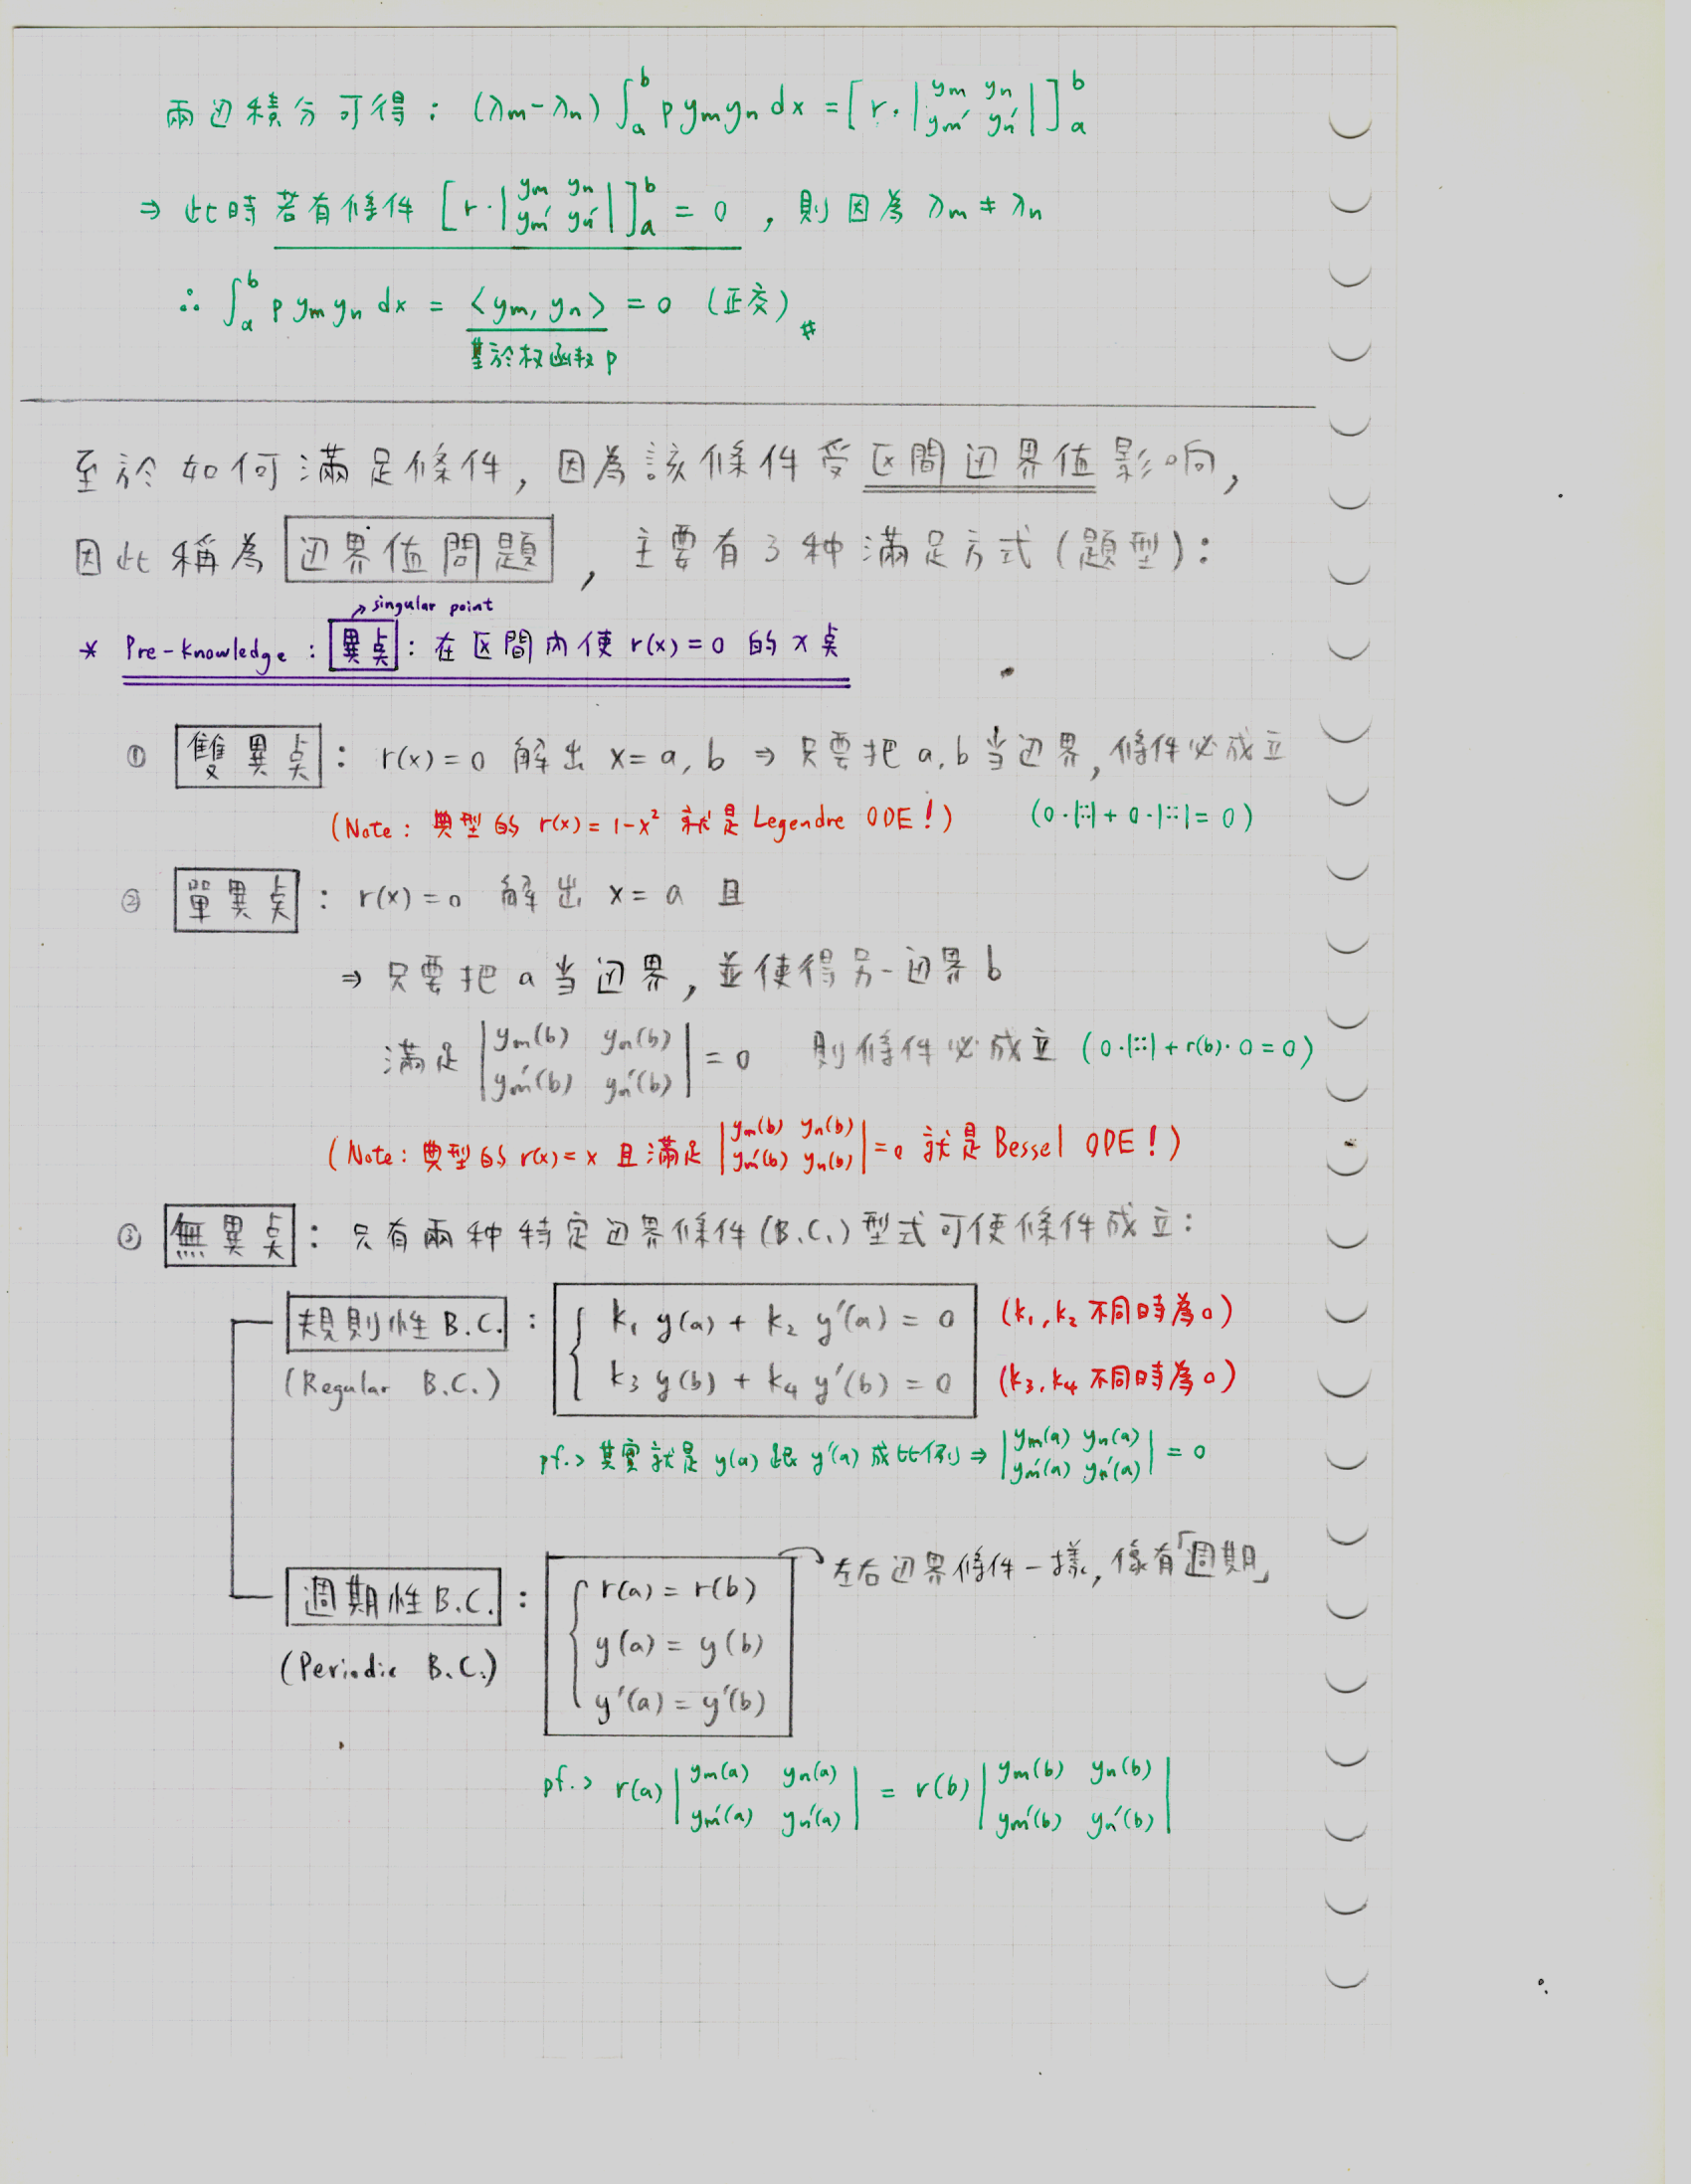 兩边積分可得：(λm-λn) ∫_a^b p ym yn dx = [r·|ym yn; ym' yn'|]_a^b
⇒ 此時若有條件 [r·|ym yn; ym' yn'|]_a^b = 0，則因為 λm ≠ λn
∴ ∫_a^b p ym yn dx = <ym, yn> = 0 (正交) #
基於权函数 p
至於如何滿足條件，因為該條件受区間边界值影响，
因此稱為 边界值問題，主要有3种滿足方式(題型)：
→ singular point
* Pre-knowledge：異点：在区間內使 r(x)=0 的 x 点
① 雙異点：r(x)=0 解出 x=a, b ⇒ 只要把 a, b 当边界，條件必成立
(Note：典型的 r(x)=1-x² 就是 Legendre ODE!) (0·|::|+0·|::|=0)
② 單異点：r(x)=0 解出 x=a 且
⇒ 只要把 a 当边界，並使得另一边界 b
滿足 |ym(b) yn(b); ym'(b) yn'(b)| = 0 則條件必成立 (0·|::|+r(b)·0=0)
(Note：典型的 r(x)=x 且滿足 |ym(b) yn(b); ym'(b) yn(b)|=0 就是 Bessel ODE!)
③ 無異点：只有兩种特定边界條件(B.C.)型式可使條件成立：
規則性B.C.：{ k₁ y(a) + k₂ y'(a) = 0 (k₁, k₂ 不同時為0)
(Regular B.C.) k₃ y(b) + k₄ y'(b) = 0 (k₃, k₄ 不同時為0)
pf.> 其實就是 y(a) 跟 y'(a) 成比例 ⇒ |ym(a) yn(a); ym'(a) yn'(a)| = 0
左右边界條件一樣，像有「週期」
週期性B.C.：{ r(a) = r(b)
y(a) = y(b)
(Periodic B.C.)
y'(a) = y'(b)
pf.> r(a) |ym(a) yn(a); ym'(a) yn'(a)| = r(b) |ym(b) yn(b); ym'(b) yn'(b)|